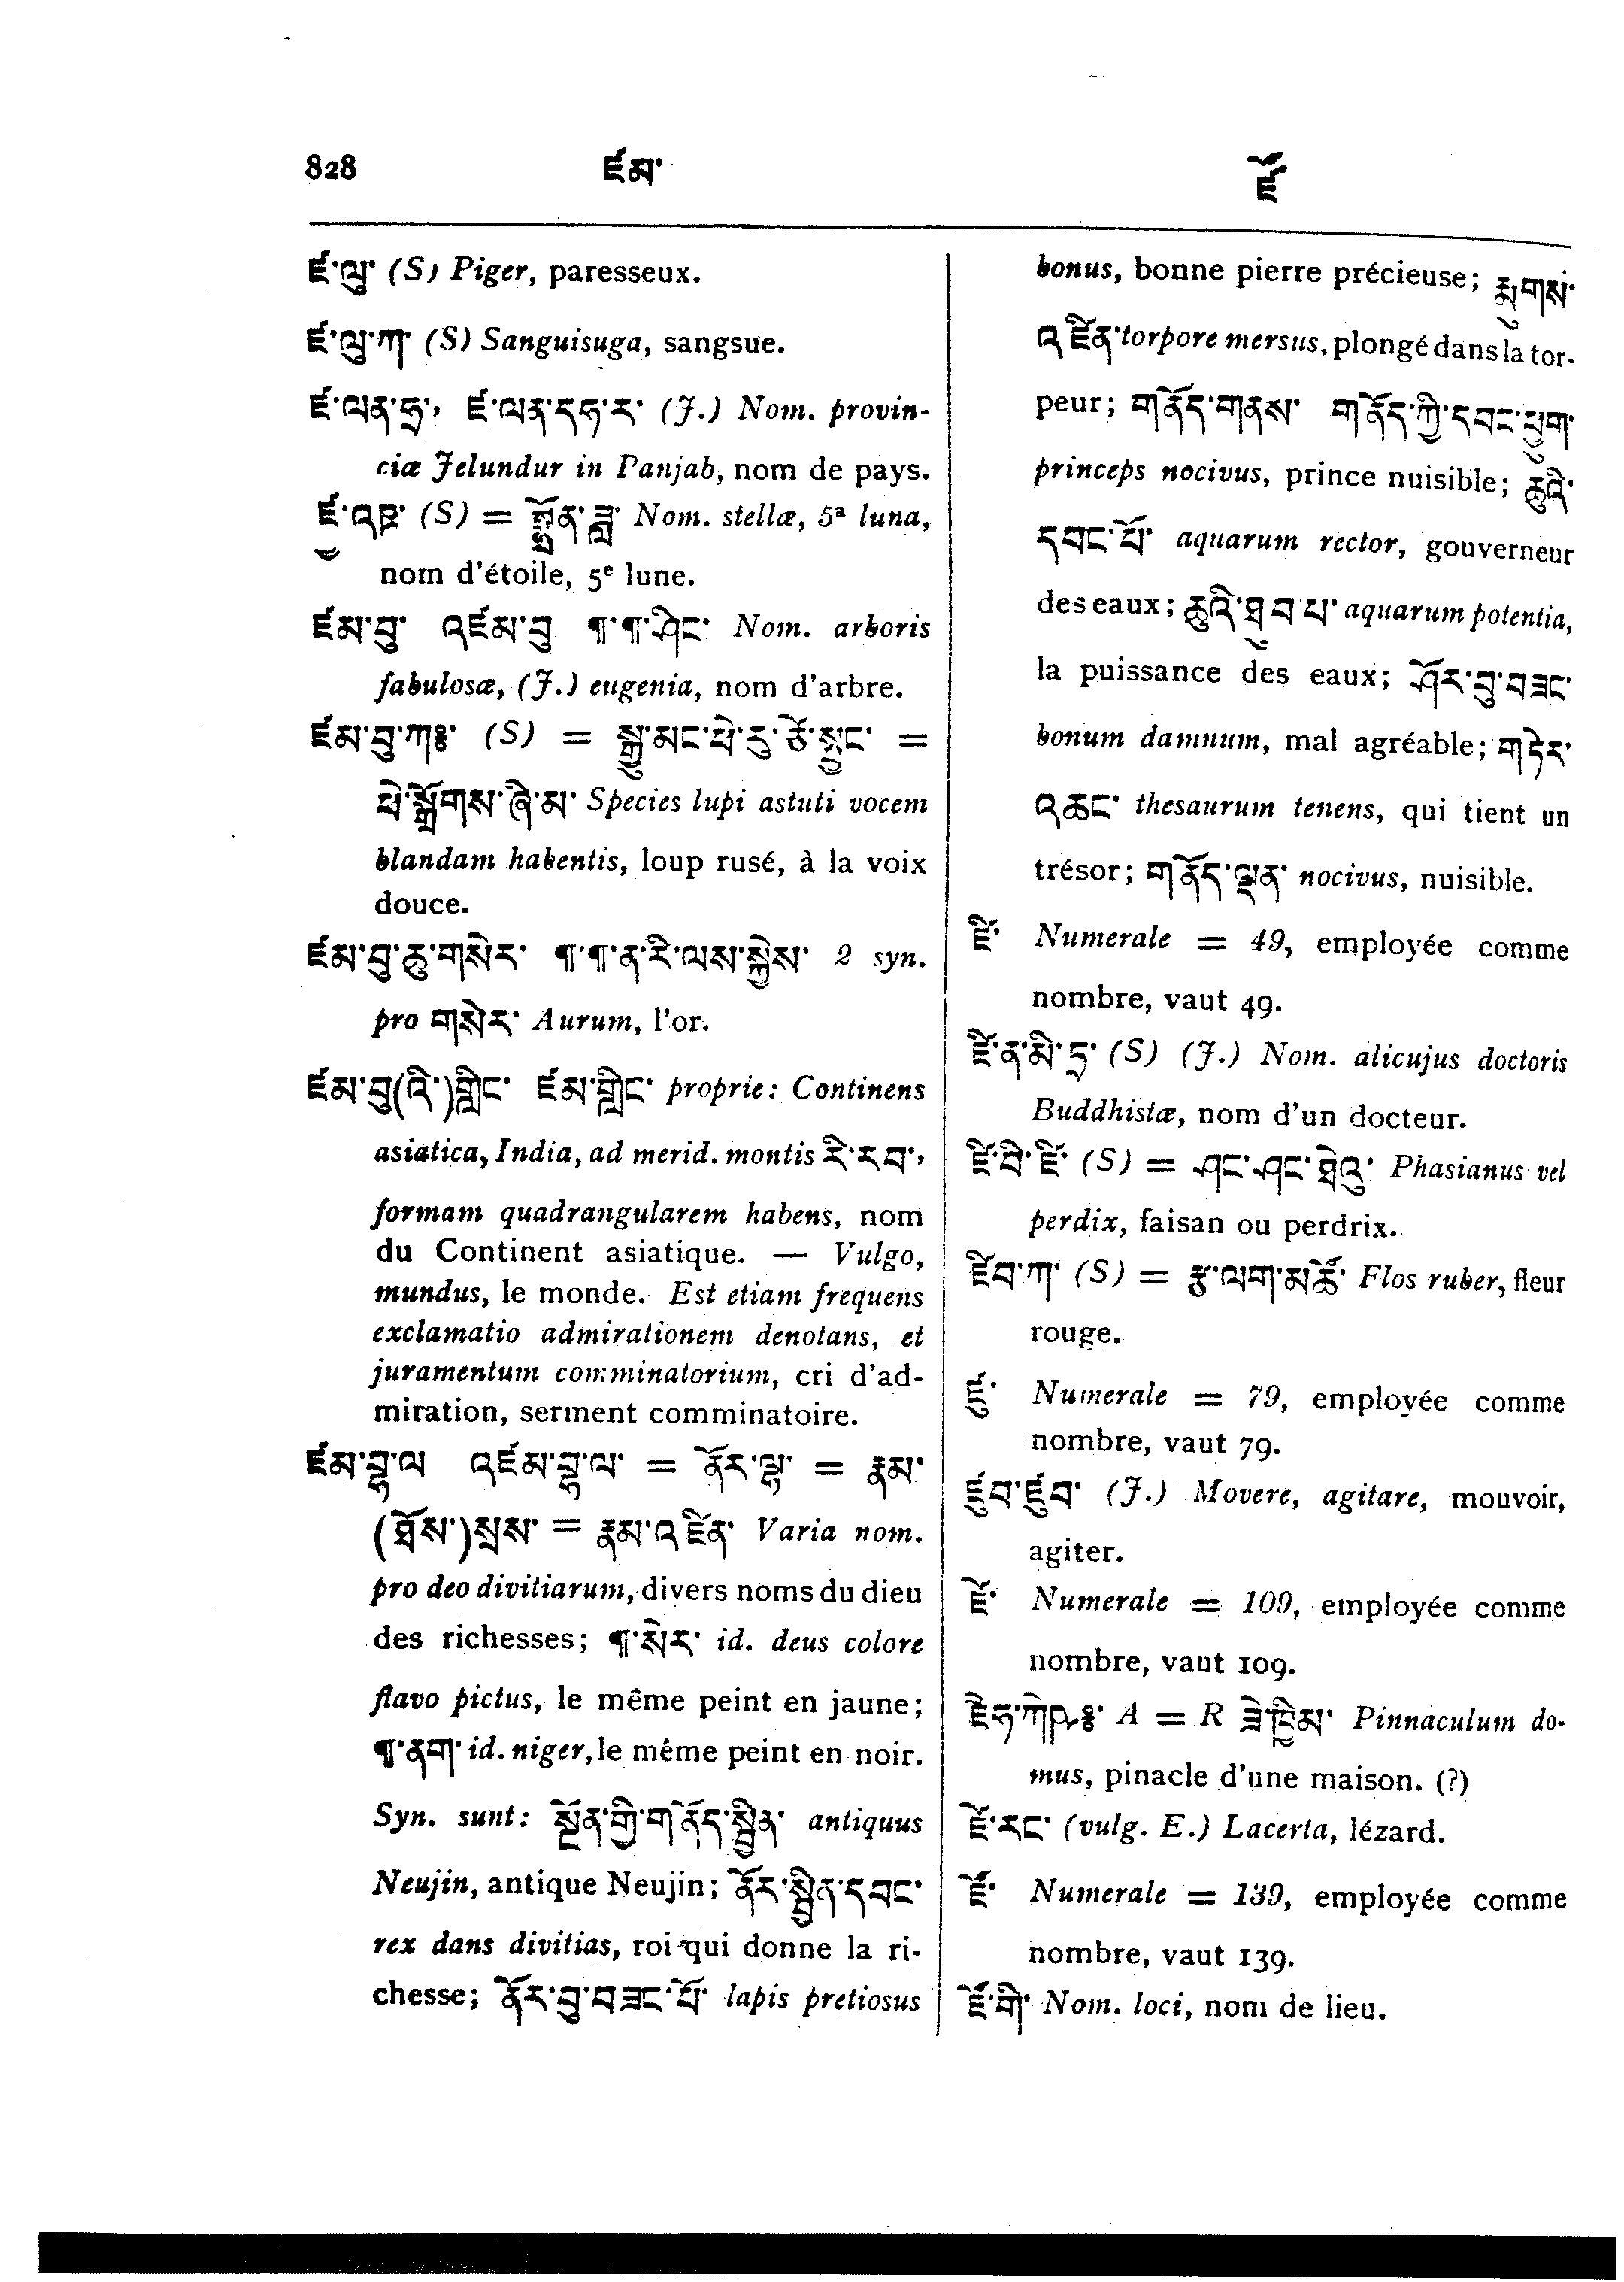 828 ཛམ་ ཛོ་
ཛ་ལུ་ (S) Piger, paresseux.
ཛ་ལུ་ཀ་ (S) Sanguisuga, sangsue.
ཛ་ལན་དྷ་, ཛ་ལན་དཧ་ར་ (J.) Nom. provin-
ciæ Jelundur in Panjab, nom de pays.
(S) = Nom. stellæ, 5ª luna,
nom d'étoile, 5e lune.
ཛམ་བུ་ འཛམ་བུ ༶་༶་ཤིང་ Nom. arboris
fabulosæ, (J.) eugenia, nom d'arbre.
ཛམ་བུ་ཀཿ (S) = =
Species lupi astuti vocem
blandam habentis, loup rusé, à la voix
douce.
ཛམ་བུ་ཆུ་གསེར་ ན་རི་ལས་སྐྱེས་ 2 syn.
pro གསེར་ Aurum, l'or.
ཛམ་བུ(འི་)གླིང་ ཛམ་གླིང་ proprie: Continens
asiatica, India, ad merid. montis རི་རབ་,
formam quadrangularem habens, nom
du Continent asiatique. — Vulgo,
mundus, le monde. Est etiam frequens
exclamatio admirationem denotans, et
juramentum comminatorium, cri d'ad-
miration, serment comminatoire.
ཛམ་བྷ་ལ འཛམ་བྷ་ལ་ = ནོར་ལྷ་ = རྣམ་
(ཐོས་)སྲས་ = རྣམ་འཛིན་ Varia nom.
pro deo divitiarum, divers noms du dieu
des richesses; སེར་ id. deus colore
flavo pictus, le même peint en jaune;
ནག་ id. niger, le même peint en noir.
Syn. sunt: སྔོན་གྱི་གནོད་སྦྱིན་ antiquus
Neujin, antique Neujin; ནོར་སྦྱིན་དབང་
rex dans divitias, roi qui donne la ri-
chesse; ནོར་བུ་བཟང་པོ་ lapis pretiosus
bonus, bonne pierre précieuse; རྨུགས་
འཛིན་ torpore mersus, plongé dans la tor-
peur; གནོད་གནས་ གནོད་ཀྱི་དབང་ཕྱུག་
princeps nocivus, prince nuisible; ཆུའི་
དབང་པོ་ aquarum rector, gouverneur
des eaux; ཆུའི་ཐུབ་པ་ aquarum potentia,
la puissance des eaux; ཤོར་བུ་བཟང་
bonum damnum, mal agréable; གཏེར་
འཆང་ thesaurum tenens, qui tient un
trésor; གནོད་ལྡན་ nocivus, nuisible.
ཛི་ Numerale = 49, employée comme
nombre, vaut 49.
ཛི་ན་མི་ཏྲ་ (S) (J.) Nom. alicujus doctoris
Buddhistæ, nom d'un docteur.
ཛི་བི་ཛི་ (S) = ཤང་ཤང་ཐེའུ་ Phasianus vel
perdix, faisan ou perdrix.
ཛིབ་ཀ་ (S) = རྩ་ལག་མཚོ་ Flos ruber, fleur
rouge.
ཛུ་ Numerale = 79, employée comme
nombre, vaut 79.
ཛུབ་ཛུབ་ (J.) Movere, agitare, mouvoir,
agiter.
ཛེ་ Numerale = 109, employée comme
nombre, vaut 109.
A = R ཟེ་ཁྱིམ་ Pinnaculum do-
mus, pinacle d'une maison. (?)
ཛེ་རང་ (vulg. E.) Lacerta, lézard.
ཛོ་ Numerale = 139, employée comme
nombre, vaut 139.
ཛོ་གི་ Nom. loci, nom de lieu.